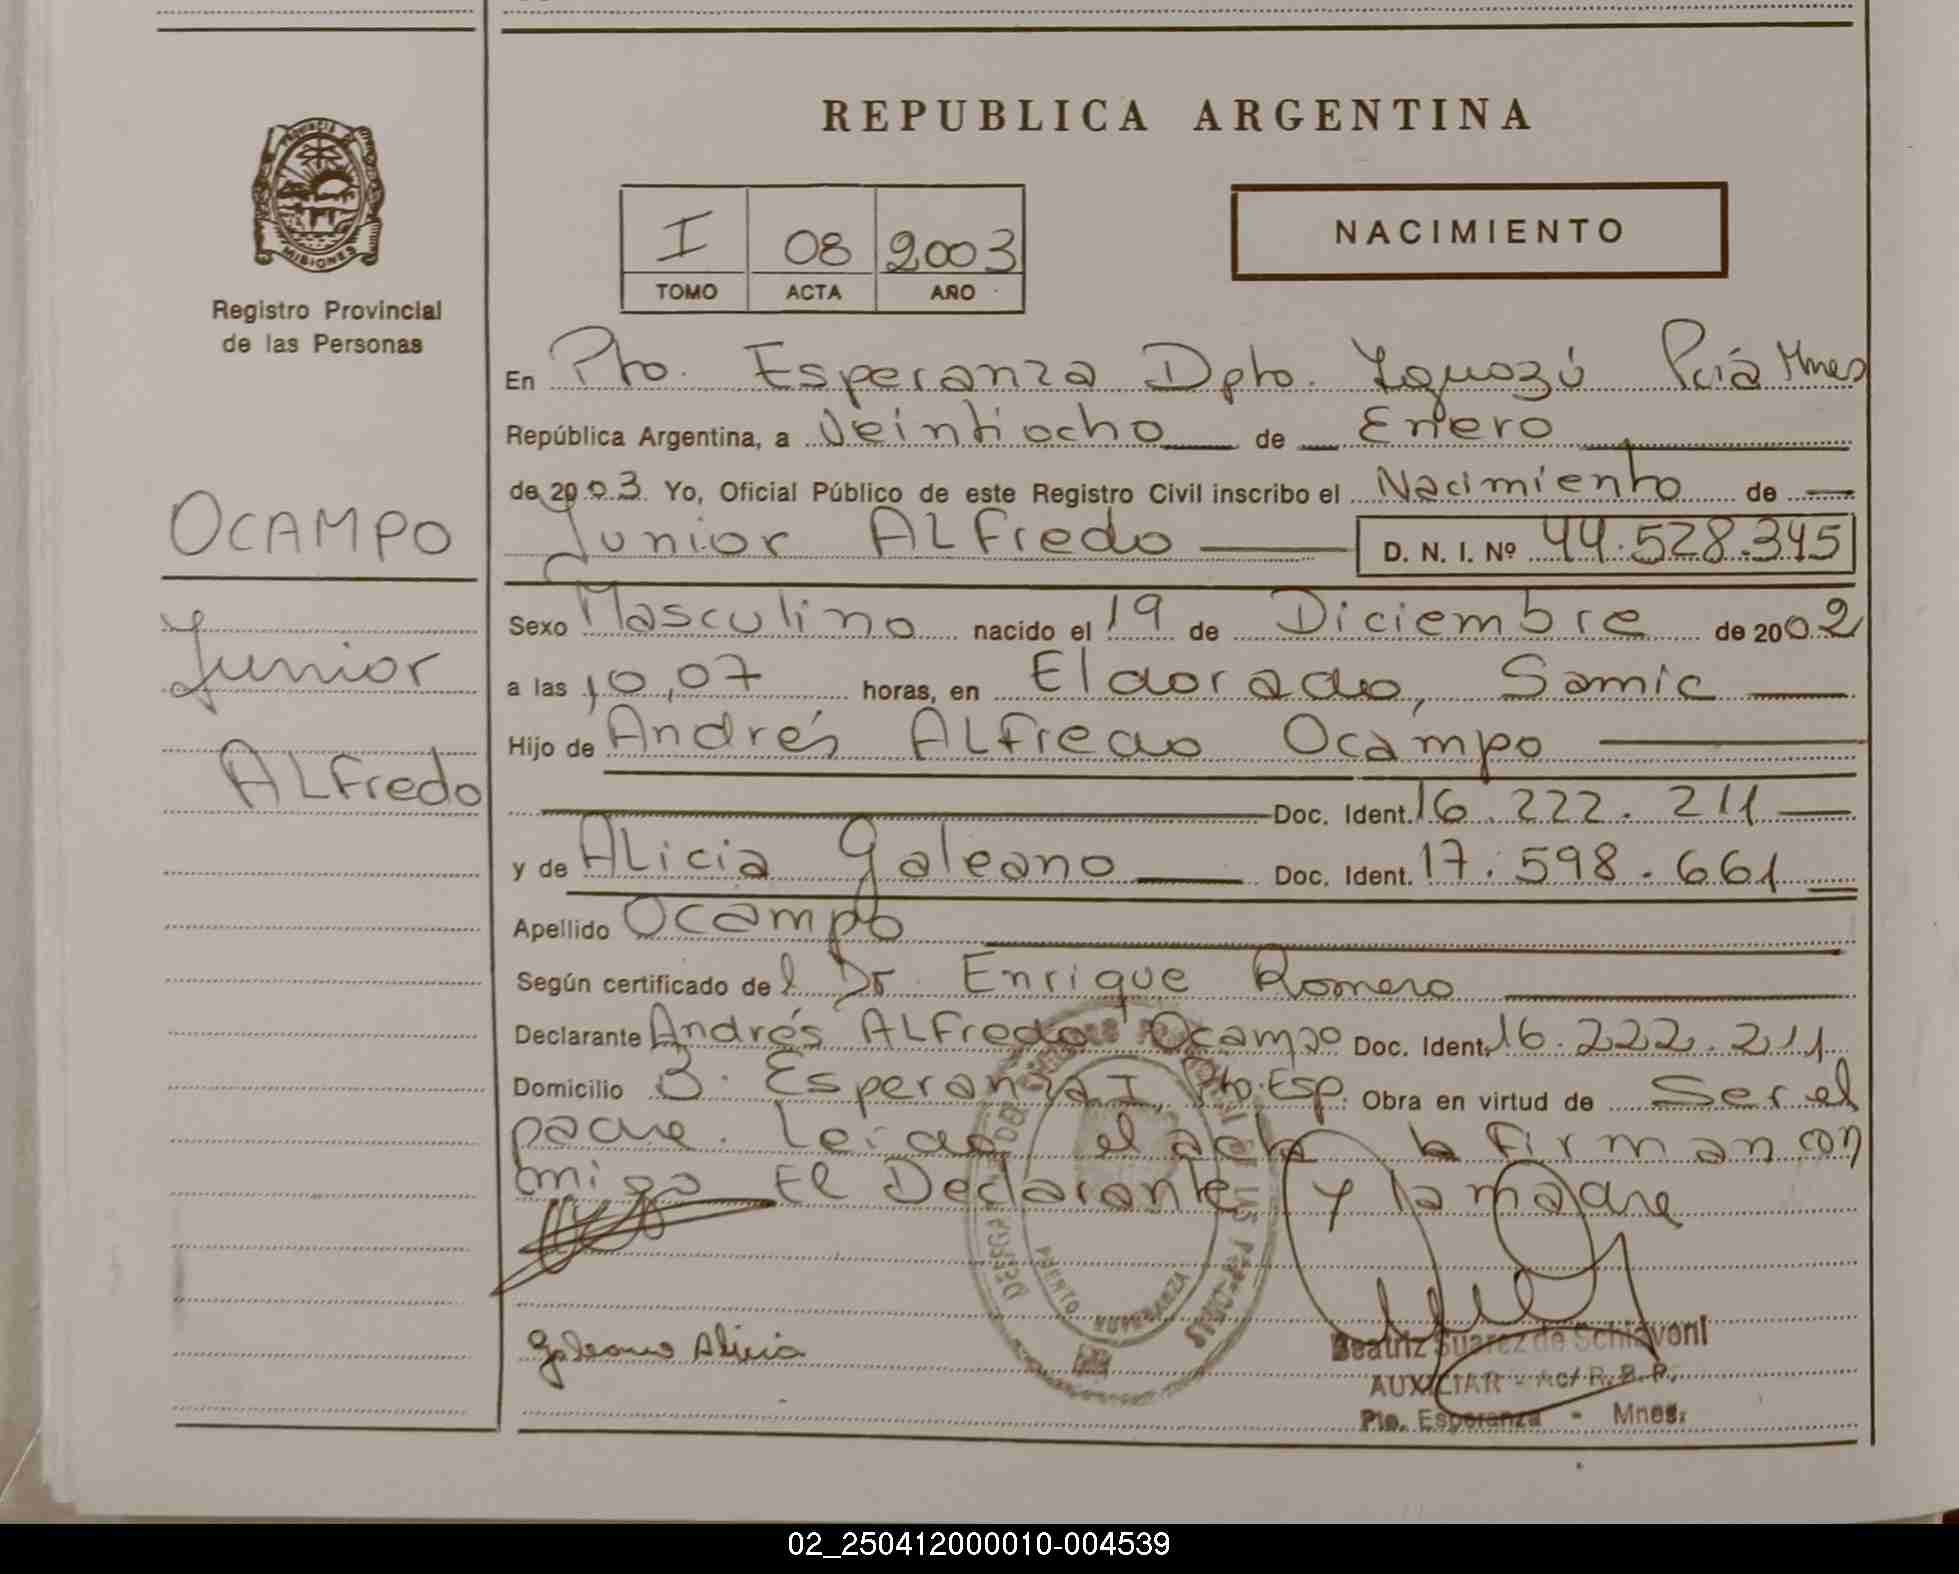 REPUBLICA ARGENTINA
PROVINCIA DE
MISIONES
Registro Provincial
de las Personas
I 08 2003
TOMO ACTA AÑO
NACIMIENTO
OCAMPO
Junior
ALFredo
En Pto. Esperanza Dpto. Iguazú Pciá Mnes
República Argentina, a Veintiocho de Enero
de 2003. Yo, Oficial Público de este Registro Civil inscribo el Nacimiento de
Junior ALFredo D. N. I. Nº 44.528.345
Sexo Masculino nacido el 19 de Diciembre de 2002
a las 10,07 horas, en Eldorado, Samic
Hijo de Andrés ALFredo Ocampo
Doc. Ident. 16.222.211
y de ALicia Galeano Doc. Ident. 17.598.661
Apellido Ocampo
Según certificado del Dr. Enrique Romero
Declarante Andrés ALFredo Ocampo Doc. Ident. 16.222.211
Domicilio B. Esperanza I, Pto. Esp. Obra en virtud de Ser el
padre. Leida el acta la Firman con
migo El Declarante y la madre
Galeano Alicia
PUERTO ESPERANZA
Beatriz Suarez de Schiavoni
AUXILIAR - Ac/ R. B. P.
Pto. Esperanza - Mnes.
02_250412000010-004539